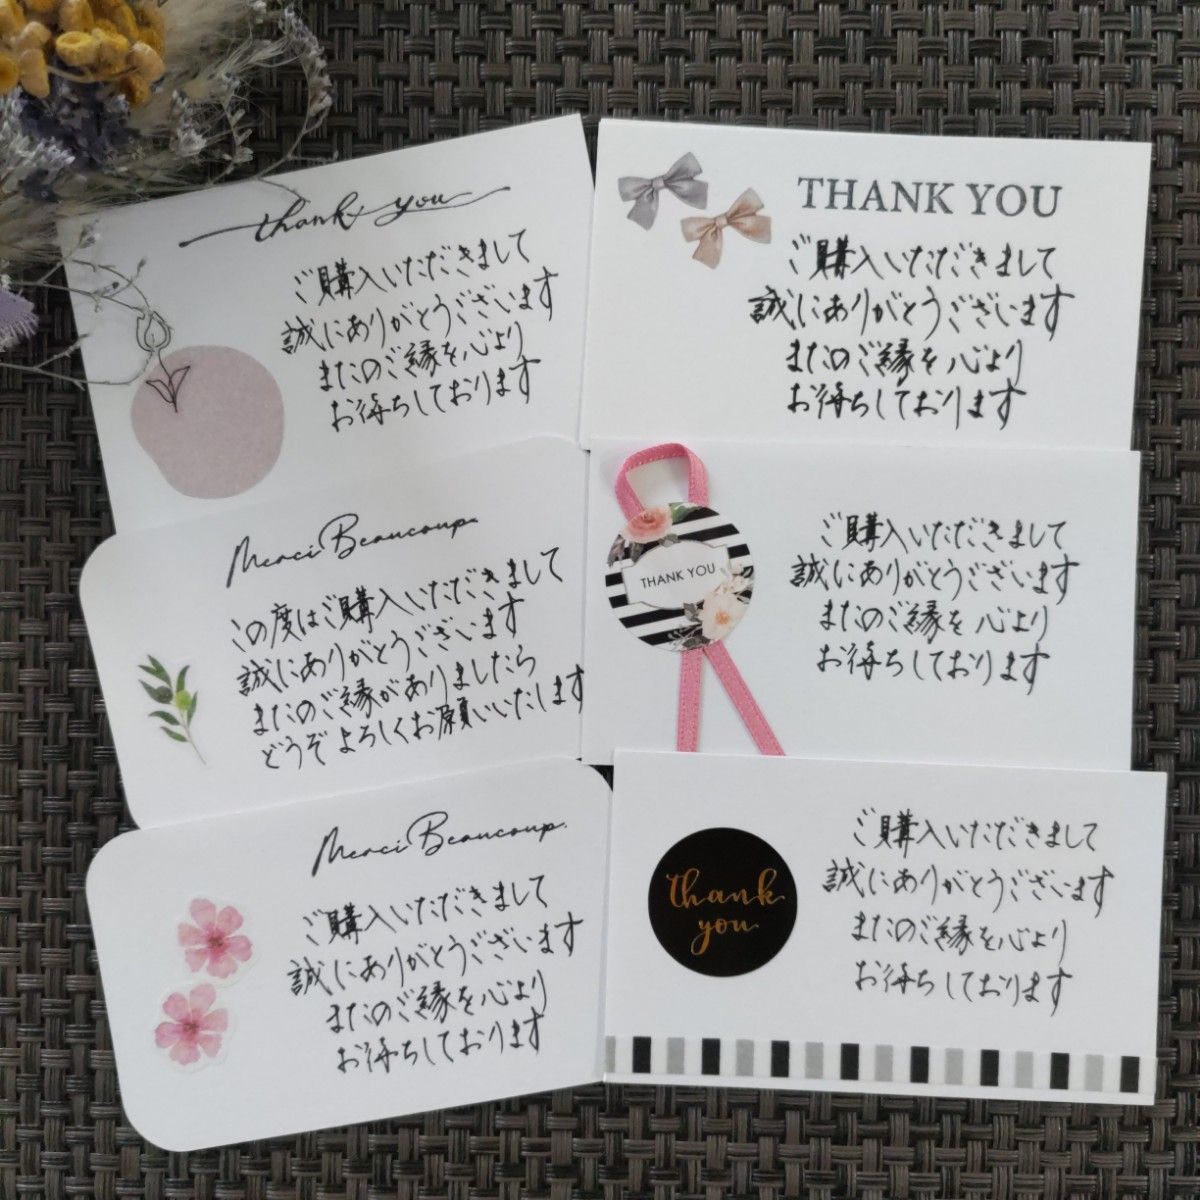 thank you
ご購入いただきまして
誠にありがとうございます
またのご縁を心より
お待ちしております
THANK YOU
ご購入いただきまして
誠にありがとうございます
またのご縁を心より
お待ちしております
Merci Beaucoup.
この度はご購入いただきまして
誠にありがとうございます
またのご縁がありましたら
どうぞよろしくお願いいたします
THANK YOU
ご購入いただきまして
誠にありがとうございます
またのご縁を心より
お待ちしております
Merci Beaucoup.
ご購入いただきまして
誠にありがとうございます
またのご縁を心より
お待ちしております
thank
you
ご購入いただきまして
誠にありがとうございます
またのご縁を心より
お待ちしております